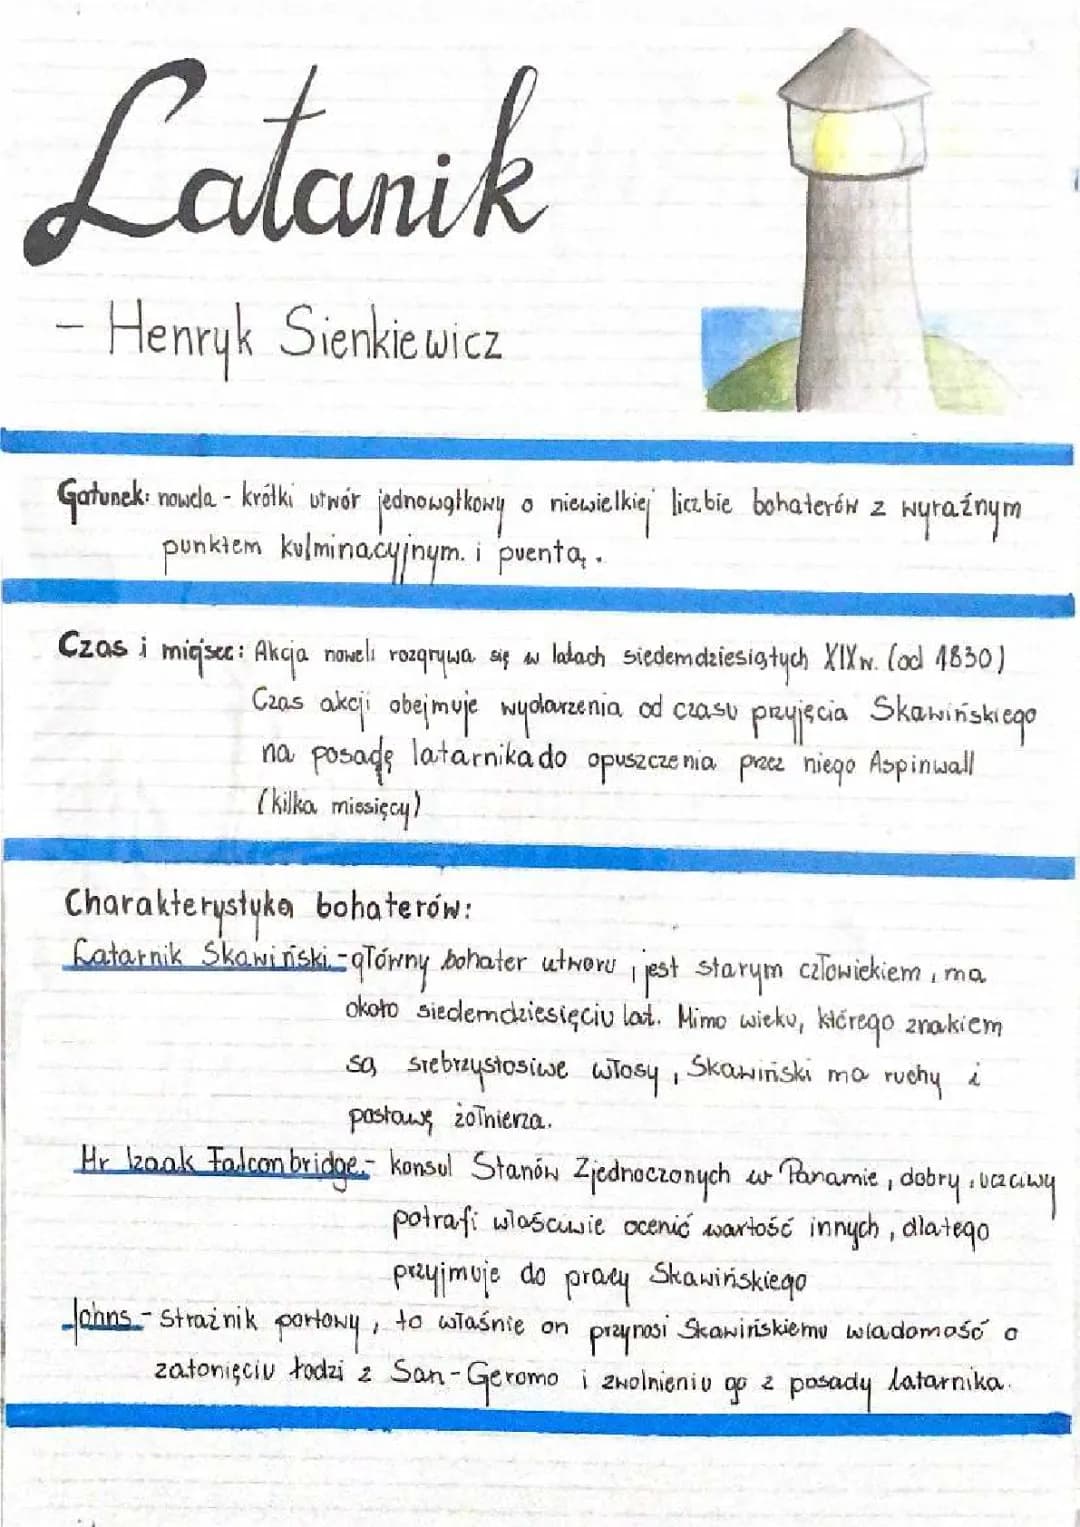 Latanik
- Henryk Sienkiewicz
Gatunek: nowela - krótki utwór jednowątkowy o niewielkiej liczbie bohaterów z wyraźnym
punktem kulminacyjnym. i puentą.
Czas i miejsce: Akcja noweli rozgrywa się w latach siedemdziesiątych XIXw. (od 1830)
Czas akcji obejmuje wydarzenia od czasu przyjęcia Skawińskiego
na posadę latarnika do opuszczenia przez niego Aspinwall
(kilka miesięcy)
Charakterystyka bohaterów:
Latarnik Skawiński - główny bohater utworu, jest starym człowiekiem, ma
około siedemdziesięciu lat. Mimo wieku, którego znakiem
są srebrzystosiwe włosy, Skawiński ma ruchy i
postawę żołnierza.
Mr Izaak Falconbridge - konsul Stanów Zjednoczonych w Panamie, dobry, uczciwy
potrafi właściwie ocenić wartość innych, dlatego
przyjmuje do pracy Skawińskiego
Johns - Strażnik portowy, to właśnie on przynosi Skawińskiemu wiadomość o
zatonięciu łodzi z San-Geromo i zwolnieniu go z posady latarnika.